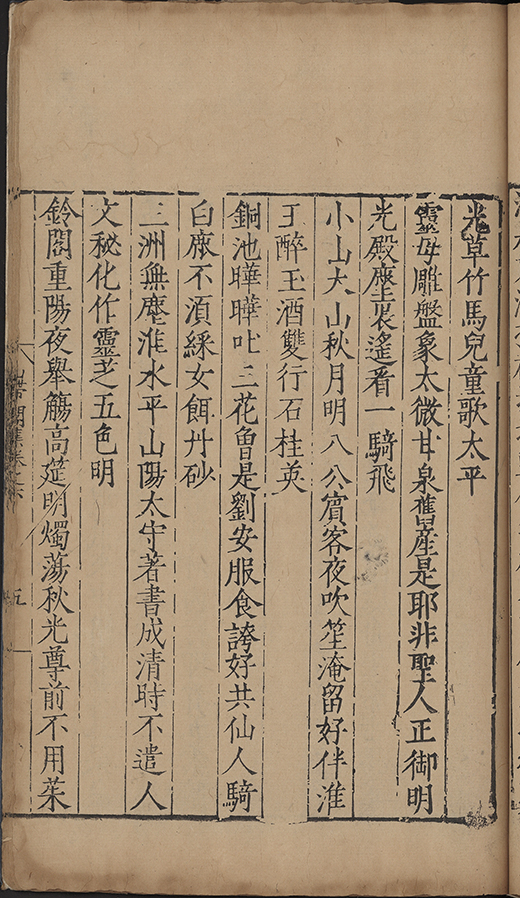 光草竹馬兒童歌太平
靈母雕盤象太微甘泉舊産是耶非聖人正御明
光殿塵裏遙看一騎飛
小山大山秋月明八公賓客夜吹笙淹留好伴淮
王醉玉酒雙行石桂英
銅池曄曄吐三花曾是劉安服食誇好共仙人騎
白鹿不湏綵女餌丹砂
三洲無塵淮水平山陽太守著書成清時不遣人
文秘化作靈芝五色明
鈴閣重陽夜舉觴高筵明燭蕩秋光尊前不用茱
五